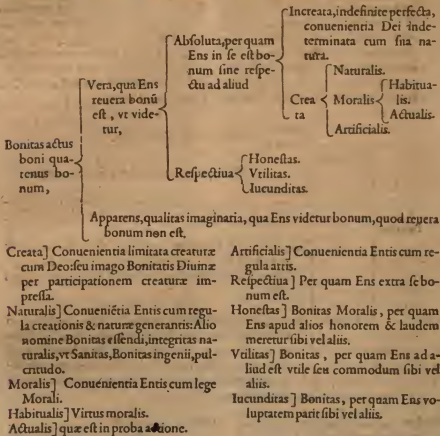 Bonitas actus
boni qua-
tenus bo-
num,
Vera, qua Ens
reuera bonũ
est, vt vide-
tur,
Absoluta, per quam
Ens in se est bo-
num sine respe-
ctu ad aliud
Increata, indefinite perfecta,
conuenientia Dei inde-
terminata cum sua na-
tura.
Crea
ta
Naturalis.
Moralis
Habitua-
lis.
Actualis.
Artificialis.
Respectiua
Honestas.
Vtilitas.
Iucunditas.
Apparens, qualitas imaginaria, qua Ens videtur bonum, quod reuera
bonum non est.
Creata] Conuenientia limitata creaturæ
cum Deo: seu imago Bonitatis Diuinæ
per participationem creaturæ im-
pressa.
Naturalis] Conueniẽtia Entis cum regu-
la creationis & naturæ generantis: Alio
nomine Bonitas essendi, integritas na-
turalis, vt Sanitas, Bonitas ingenii, pul-
critudo.
Moralis] Conuenientia Entis cum lege
Morali.
Habitualis] Virtus moralis.
Actualis] quæ est in proba actione.
Artificialis] Conuenientia Entis cum re-
gula artis.
Respectiua] Per quam Ens extra se bo-
num est.
Honestas] Bonitas Moralis, per quam
Ens apud alios honorem & laudem
meretur sibi vel aliis.
Vtilitas] Bonitas, per quam Ens ad a-
liud est vtile seu commodum sibi vel
aliis.
Iucunditas] Bonitas, per quam Ens vo-
luptatem parit sibi vel aliis.